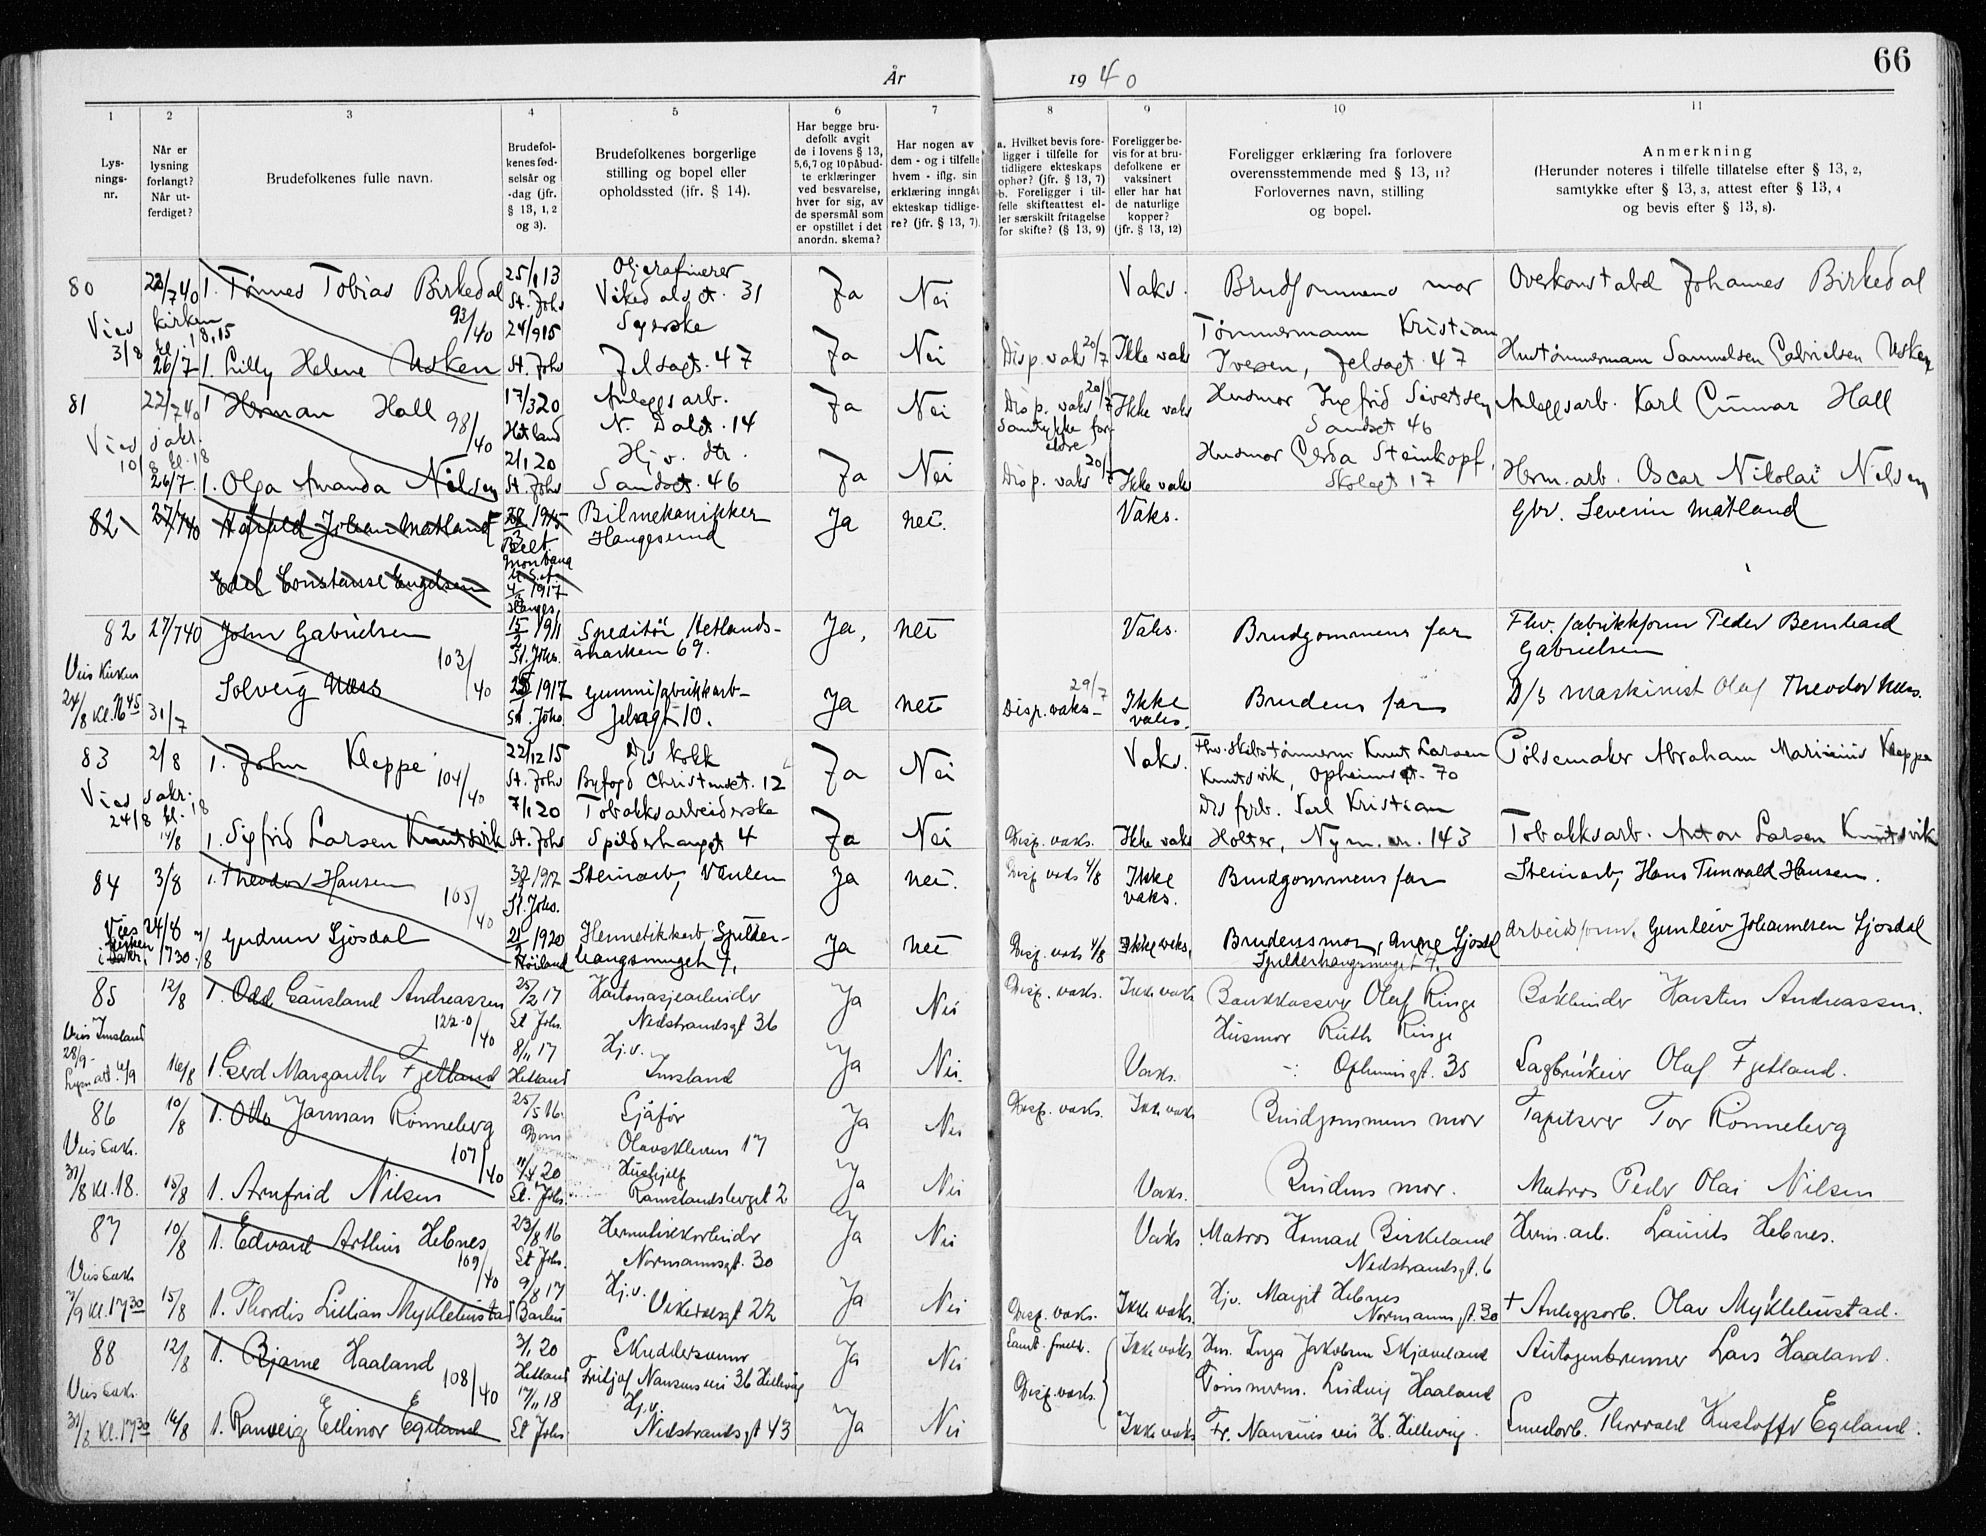 66
År 1940
1 2 3 4 5 6 7 8 9 10 11
Lysningsnr.
Når er lysning forlangt? Når utferdiget?
Brudefolkenes fulle navn.
Brudefolkenes fødselsår og -dag (jfr. § 13, 1, 2 og 3).
Brudefolkenes borgerlige stilling og bopel eller opholdssted (jfr. § 14).
Har begge brudefolk avgit de i lovens § 13, 5,6,7 og 10 påbudte erklæringer ved besvarelse, hver for sig, av de spørsmål som er opstillet i det anordn. skema?
Har nogen av dem - og i tilfelle hvem - iflg. sin erklæring inngått ekteskap tidligere? (jfr. § 13, 7).
a. Hvilket bevis foreligger i tilfelle for tidligere ekteskaps ophør? (jfr. § 13, 7) b. Foreligger i tilfelle skifteattest eller særskilt fritagelse for skifte? (§ 13, 9)
Foreligger bevis for at brudefolkene er vaksinert eller har hat de naturlige kopper? (jfr. § 13, 12)
Foreligger erklæring fra forlovere overensstemmende med § 13, 11? Forlovernes navn, stilling og bopel.
Anmerkning (Herunder noteres i tilfelle tillatelse efter § 13, 2, samtykke efter § 13, 3, attest efter § 13, 4 og bevis efter § 13, 8).
80 22/7 40 1. Tønnes Tobias Birkedal 25/1 13 St. Johs Oljerafinerer Vikedalsgt. 31 Ja Nei Vaks. Brudgommens mor Overkonstabel Johannes Birkedal
Vies kirken 3/8 kl. 18,15 93/40
26/7 1. Lilly Helene Usken 24/9 15 St. Johs Syerske Jelsagt. 47 Ja Nei Disp. vaks 20/7 Ikke vaks Tømmermann Kristian Iversen, Jelsagt. 47 Hustømmermann Samuelsen Gabrielsen Usken
81 22/7 40 1 Herman Hall 98/40 17/3 20 Hetland Anleggsarb. N. Dalgt. 14 Ja Nei Disp. vaks 20/7 Samtykke foreldre Ikke vaks Husmor Ingfrid Sivertsen Sandsgt 46 Anleggsarb. Karl Gunnar Hall
Vies sakr. 10/8 kl. 18
26/7. 1. Olga Amanda Nilsen 2/1 20 St. Johs Hj.v. dtr. Sandsgt. 46 Ja Nei Disp. vaks 20/7 Ikke vaks Husmor Gerda Steinkopf, Skolegt 17 Herm. arb. Oscar Nikolai Nilsen
82 27/7 40 Harald Johan Matland 1915 Belt Montana U.S.A. Bilmekanikker Haugesund Ja nei. Vaks. Gbr. Severin Matland
Edel Constanse Engelsen 1917 Hauges.
82 27/7 40 John Gabrielsen 103/40 15/2 1911 St. Johs. Speditør Hetlandsmarken 69. Ja, nei Vaks. Brudgommens far Fhv. fabrikkform Peder Bernhard Gabrielsen
Vies Kirken 24/8 Kl. 16 45
31/7 Solveig Næss 1917 St. Johs. Gummifabrikkarb- Jelsagt 10. Ja nei Disp. vaks- 29/7 Ikke vaks. Brudens far D/s maskinist Olaf Theodor Næss.
83 2/8 1. John Kleppe 104/40 22/12 15 St. Johs D/s kokk Byfogd Christensgt. 12 Ja Nei Vaks. Fhv. skibstømmerm Knut Larsen Knutsvik, Opheimsgt. 70 Pølsemaker Abraham Marinius Kleppe
Vies sakr. 24/8 kl. 18
14/8 1. Sigfrid Larsen Knutsvik 7/1 20 St. Johs Tobakksarbeiderske Spilderhauggt 4 Ja Nei Disp. vaks. Ikke vaks D/s fyrb. Karl Kristian Holter, Nym. 143 Tobakksarb. Anton Larsen Knutsvik
84 3/8 1. Theodor Hansen 105/40 1917 St. Johs. Steinarb, Vaulen Ja nei. Disp vaks 4/8 Ikke vaks. Brudgommens far Steinarb, Hans Tunvald Hansen.
Vies 24/8 kirken kl 17 30
Gudrun Ljosdal 21/2 1920 Høiland Hermetikkarb Spilderhaugsmuget 7, Ja nei Disp. vaks 4/8 Ikke vaks. Brudens mor, Anne Ljosdal Spilderhaugsmuget 7. Arbeidsform. Gunleiv Johannesen Ljosdal
85 12/8 1. Odd Gausland Andreassen 122.0/40 25/2 17 St Johs. Kartonasjearbeider Nedstrandsgt 36 Ja Nei Disp. vaks. Ikke vaks Bankkasserer Olaf Ringe Husmor Ruth Ringe Bokbinder Karsten Andreassen.
Vies Imsland 28/9- Lysn.att. 6/9
16/8 1. Gerd Margarethe Fjetland 8/11 17 Hetland Hj.v. Imsland Ja Nei. Vaks. -: Opheimsgt. 35 Sagbruksier Olaf Fjetland.
86 10/8 1. Otto Jarman Rønneberg 107/40 25/5 16. Sjåfør Olavskleven 17 Ja Nei Disp. vaks. Ikke vaks Brudgommens mor Tapetserer Tor Rønneberg
Vies sakr. 31/8 Kl. 18.
15/8 1. Arnfrid Nilsen 11/4 20 St. Johs. Hushjelp Ramslandsberget 2 Ja Nei Vaks. Brudens mor. Matros Peder Olai Nilsen
87 10/8 1. Edvard Arthur Hebnes 109/40 23/8 16 St Johs. Hermetikkarbeider Normannsgt. 30 Ja Nei Vaks Matros Konrad Birkeland Nedstrandsgt. 6 Herm. arb. Laurits Hebnes.
Vies sakr. 7/9 Kl. 17 30
15/8 1. Thordis Lillian Myklebustad 9/8 17 Hj.v. Vikedalsgt 22 Ja Nei Disp. vaks. Ikke vaks. Hj.v. Margit Hebnes Normannsgt. 30 + Anleggsarb. Olav Myklebustad.
88 12/8 1. Bjarne Haaland 108/40 3/1 20 Hetland Skreddersvenn Fritjof Nansens vei 36 Hillevåg Ja Nei Samt. foreld. Disp. vaks. Ikke vaks. Hm. Inga Jakobine Skjæveland Autogenbrenner Lars Haaland.
Vies sakr. 31/8 Kl. 17 30
14/8 1. Ranveig Ellinor Egeland 17/11 18 St Johs Hj.v. Nedstrandsgt 43 Ja Nei Ikke vaks Tømmerm. Ludvig Haaland Fr. Nansens vei H. Hillevåg. Smedarb. Thorvald Kristoffer Egeland.